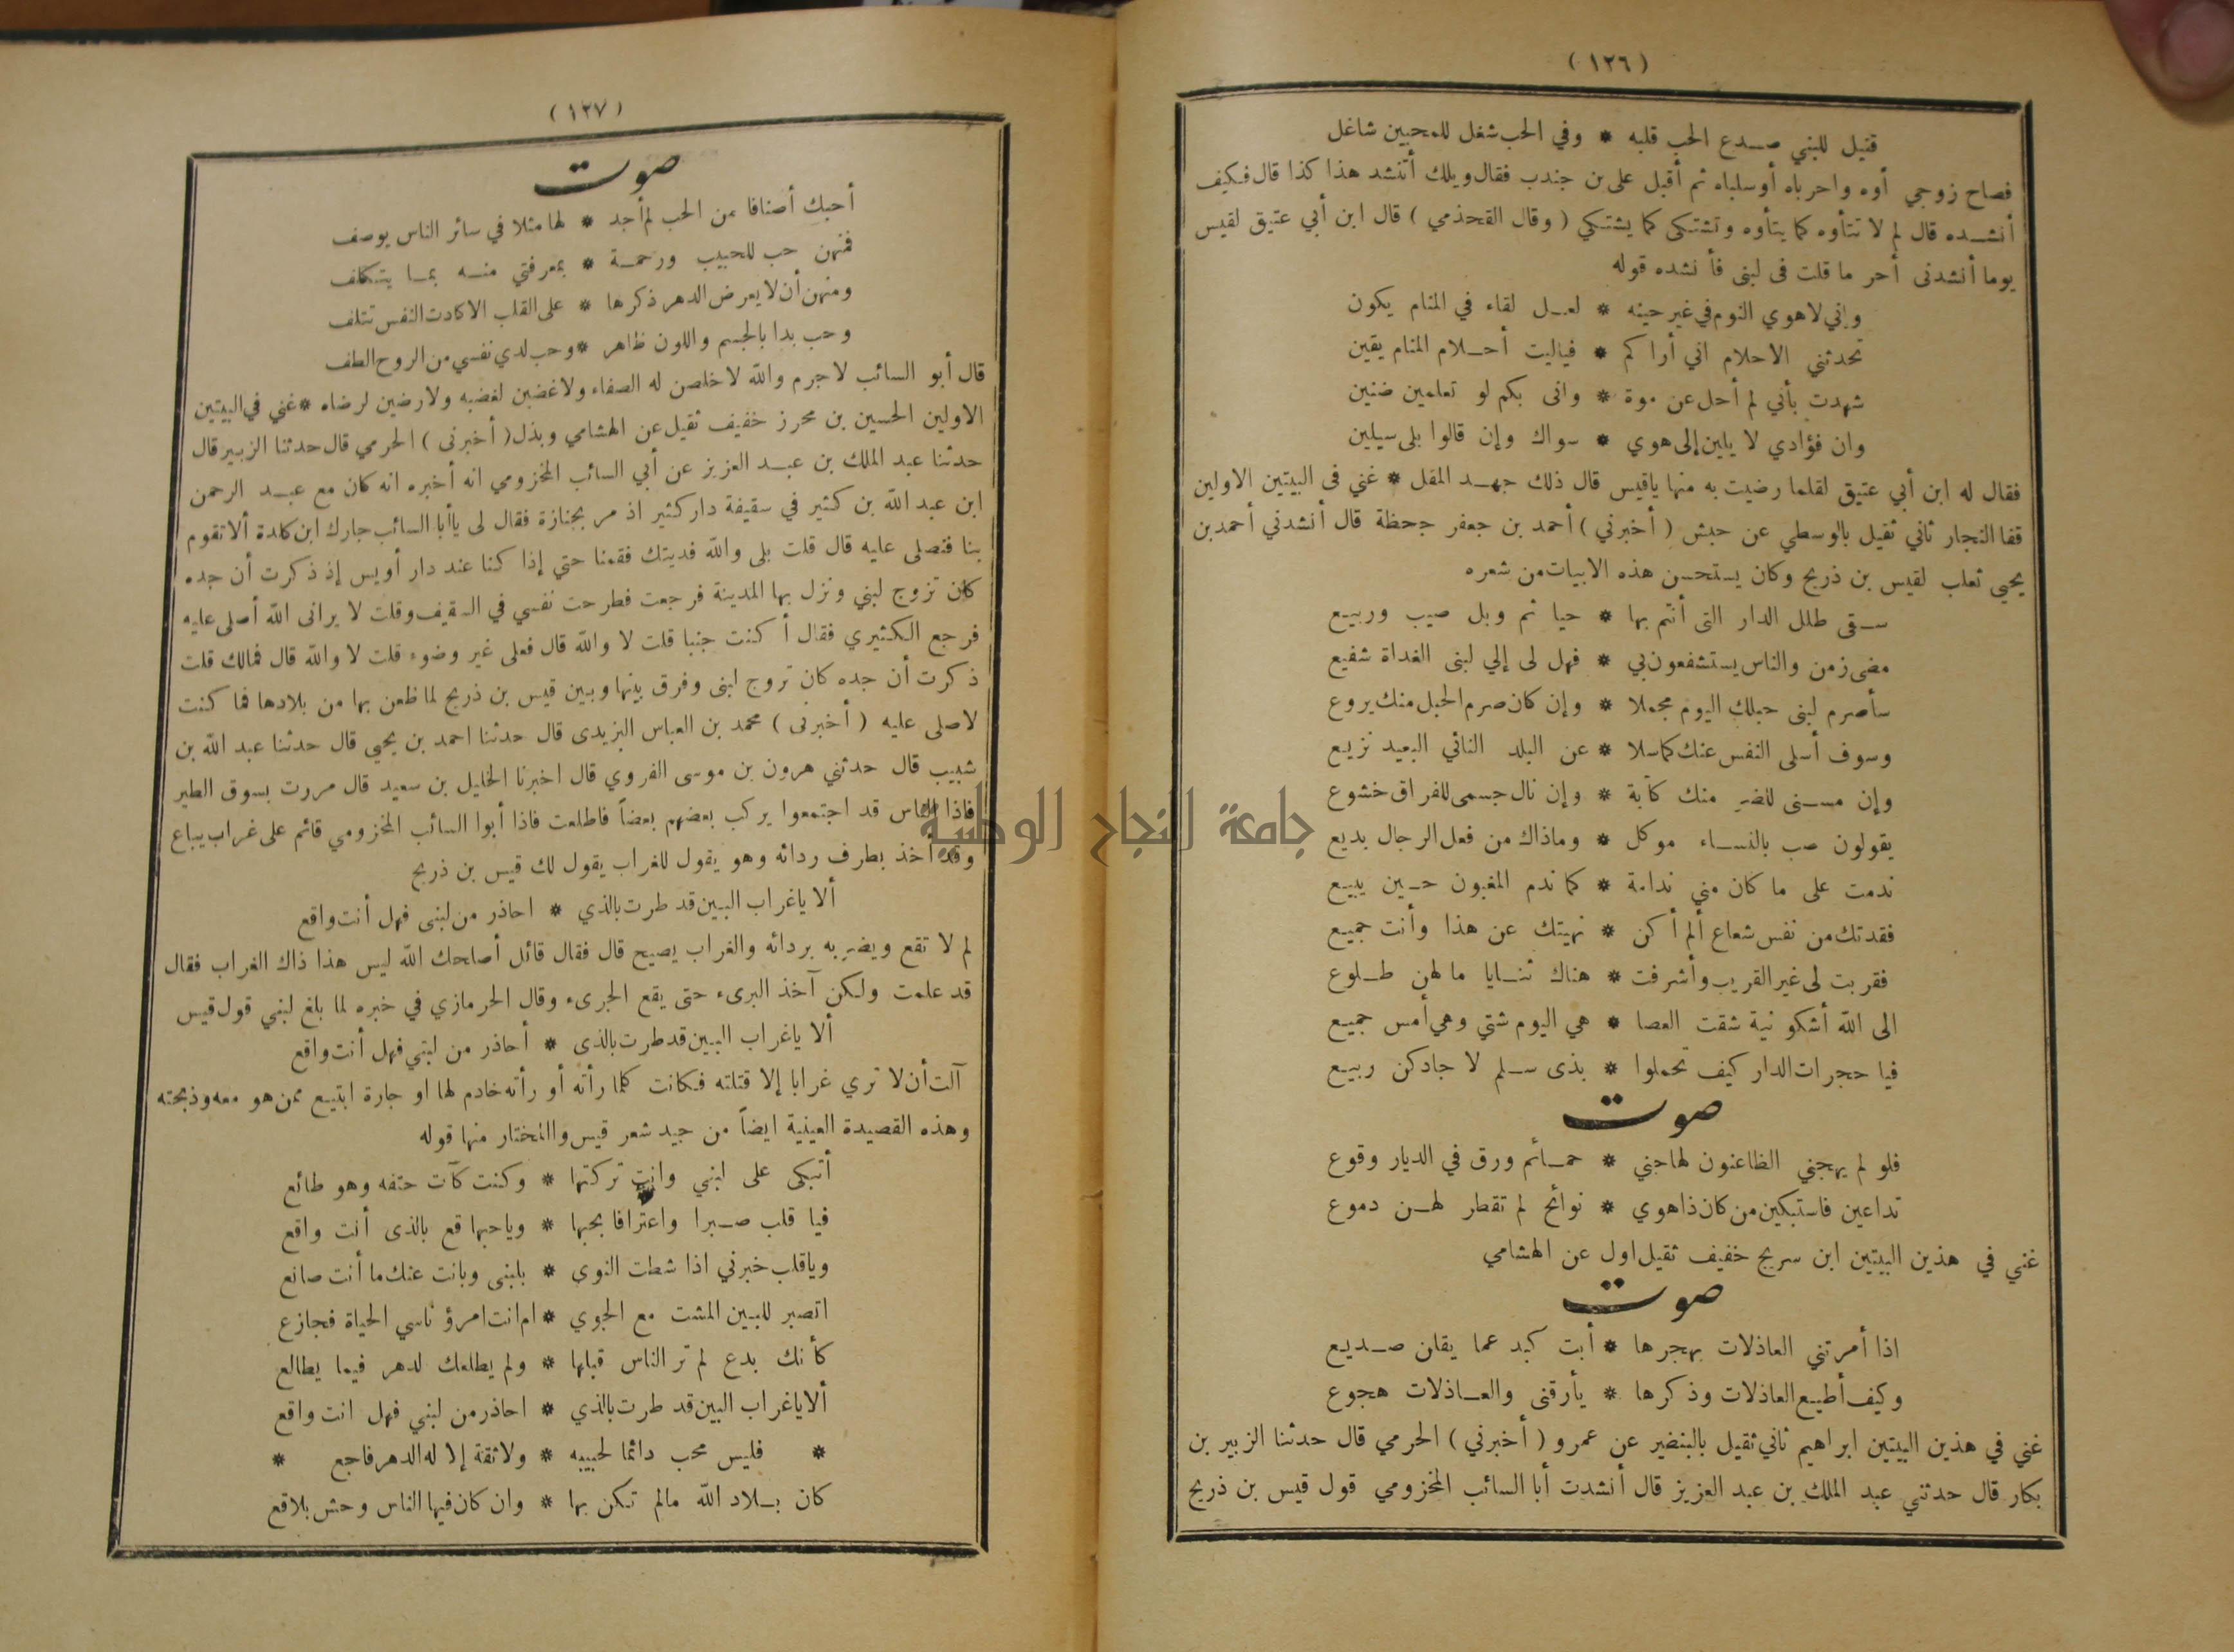 (١٢٦)
قتيل للبني صدع الحب قلبه * وفي الحب شغل للمحبين شاغل
فصاح زوجي أوه واحرباه أوسلباه ثم أقبل على بن جندب فقال ويلك أتنشد هذا كذا قال فكيف
أنشده قال لم لا تتأوه كما يتأوه وتشتكى كما يشتكي ( وقال القحذمي ) قال ابن أبي عتيق لقيس
يوما أنشدنى أحر ما قلت فى لبنى فأنشده قوله
وإني لاهوي النوم في غير حينه * لعل لقاء في المنام يكون
تحدثني الاحلام اني أراكم * فياليت أحلام المنام يقين
شهدت بأني لم أحل عن موة * وانى بكم لو تعلمين ضنين
وان فؤادي لا يلين إلى هوي * سواك وإن قالوا بلى سيلين
فقال له ابن أبي عتيق لقلما رضيت به منها ياقيس قال ذلك جهد المقل * غني فى البيتين الاولين
قفا النجار ثاني ثقيل بالوسطي عن حبش ( أخبرني ) أحمد بن جعفر جحظة قال أنشدني أحمد بن
يحيى ثعلب لقيس بن ذريح وكان يستحسن هذه الابيات من شعره
سقى طلل الدار التى أنتم بها * حيا ثم وبل صيب وربيع
مضى زمن والناس يستشفعون بي * فهل لى إلي لبنى الغداة شفيع
سأصرم لبنى حبلك اليوم مجملا * وإن كان صرم الحبل منك يروع
وسوف أسلى النفس عنك كما سلا * عن البلد النائي البعيد نزيع
وإن مسنى للضر منك كآبة * وإن نال جسمى للفراق خشوع
يقولون صب بالنساء موكل * وماذاك من فعل الرجال بديع
ندمت على ما كان مني ندامة * كما ندم المغبون حين يبيع
فقدتك من نفس شعاع ألم أكن * نهيتك عن هذا وأنت جميع
فقربت لى غير القريب وأشرفت * هناك ثنايا ما لهن طلوع
الى الله أشكو نية شقت العصا * هي اليوم شتي وهي أمس جميع
فيا حجرات الدار كيف تحملوا * بذى سلم لا جادكن ربيع
صوت
فلو لم يهجني الظاعنون لهاجني * حمائم ورق في الديار وقوع
تداعين فاستبكين من كان ذا هوي * نوائح لم تقطر لهن دموع
غني في هذين البيتين ابن سريج خفيف ثقيل اول عن الهشامي
صوت
اذا أمرتني العاذلات بهجرها * أبت كبد عما يقلن صديع
وكيف أطيع العاذلات وذكرها * يأرقنى والعاذلات هجوع
غني في هذين البيتين ابراهيم ثاني ثقيل بالبنصر عن عمرو ( أخبرني ) الحرمي قال حدثنا الزبير بن
بكار قال حدثني عبد الملك بن عبد العزيز قال أنشدت أبا السائب المخزومي قول قيس بن ذريح
(١٢٧)
صوت
أحبك أصنافا من الحب لم أجد * لها مثلا في سائر الناس يوصف
فمنهن حب للحبيب ورحمة * بمعرفتي منه بما يتكلف
ومنهن أن لا يعرض الدهر ذكرها * على القلب الا كادت النفس تتلف
وحب بدا بالجسم واللون ظاهر * وحب لدي نفسي من الروح الطف
قال أبو السائب لاجرم والله لاخلصن له الصفاء ولاغضبن لغضبه ولارضين لرضاه * غني في البيتين
الاولين الحسين بن محرز خفيف ثقيل عن الهشامي وبذل ( أخبرنى ) الحرمي قال حدثنا الزبير قال
حدثنا عبد الملك بن عبد العزيز عن أبي السائب المخزومي انه أخبره انه كان مع عبد الرحمن
ابن عبد الله بن كثير في سقيفة دار كثير اذ مر بجنازة فقال لى ياأبا السائب جارك ابن كلدة ألا تقوم
بنا فنصلى عليه قال قلت بلى والله فديتك فقمنا حتي إذا كنا عند دار أويس إذ ذكرت أن جده
كان تزوج لبني ونزل بها المدينة فرجعت فطرحت نفسي في السقيف وقلت لا يرانى الله أصلى عليه
فرجع الكثيري فقال أكنت جنبا قلت لا والله قال فعلى غير وضوء قلت لا والله قال فمالك قلت
ذكرت أن جده كان تزوج لبنى وفرق بينها وبين قيس بن ذريح لما ظعن بها من بلادها فما كنت
لاصلى عليه ( أخبرنى ) محمد بن العباس اليزيدى قال حدثنا احمد بن يحيى قال حدثنا عبد الله بن
شبيب قال حدثني هرون بن موسى الفروي قال اخبرنا الخليل بن سعيد قال مررت بسوق الطير
فاذا الناس قد اجتمعوا يركب بعضهم بعضاً فاطلعت فاذا أبوا السائب المخزومي قائم على غراب يباع
وقد أخذ بطرف ردائه وهو يقول للغراب يقول لك قيس بن ذريح
ألا ياغراب البين قد طرت بالذي * احاذر من لبنى فهل أنت واقع
لم لا تقع ويضربه بردائه والغراب يصيح قال فقال قائل أصلحك الله ليس هذا ذاك الغراب فقال
قد علمت ولكن آخذ البرىء حتى يقع الجرىء وقال الحرمازي في خبره لما بلغ لبني قول قيس
ألا ياغراب البين قد طرت بالذى * أحاذر من لبني فهل أنت واقع
آلت أن لا تري غرابا إلا قتلته فكانت كلما رأته أو رأته خادم لها او جارة ابتيع ممن هو معه وذبحته
وهذه القصيدة العينية ايضاً من جيد شعر قيس واالمختار منها قوله
أتبكى على لبني وانت تركتها * وكنت كآت حتفه وهو طائع
فيا قلب صبرا واعترافا بحبها * وياحبها قع بالذى أنت واقع
وياقلب خبرني اذا شطت النوى * بلبنى وبانت عنك ما أنت صانع
اتصبر للبين المشت مع الجوي * ام انت امرؤ ناسي الحياة فجازع
كأنك بدع لم تر الناس قبلها * ولم يطلعك لدهر فيما يطالع
ألا ياغراب البين قد طرت بالذي * احاذر من لبني فهل انت واقع
* فليس محب دائما لحبيبه * ولا ثقة إلا له الدهر فاجع *
كان بلاد الله مالم تكن بها * وان كان فيها الناس وحش بلاقع
جامعة النجاح الوطنية